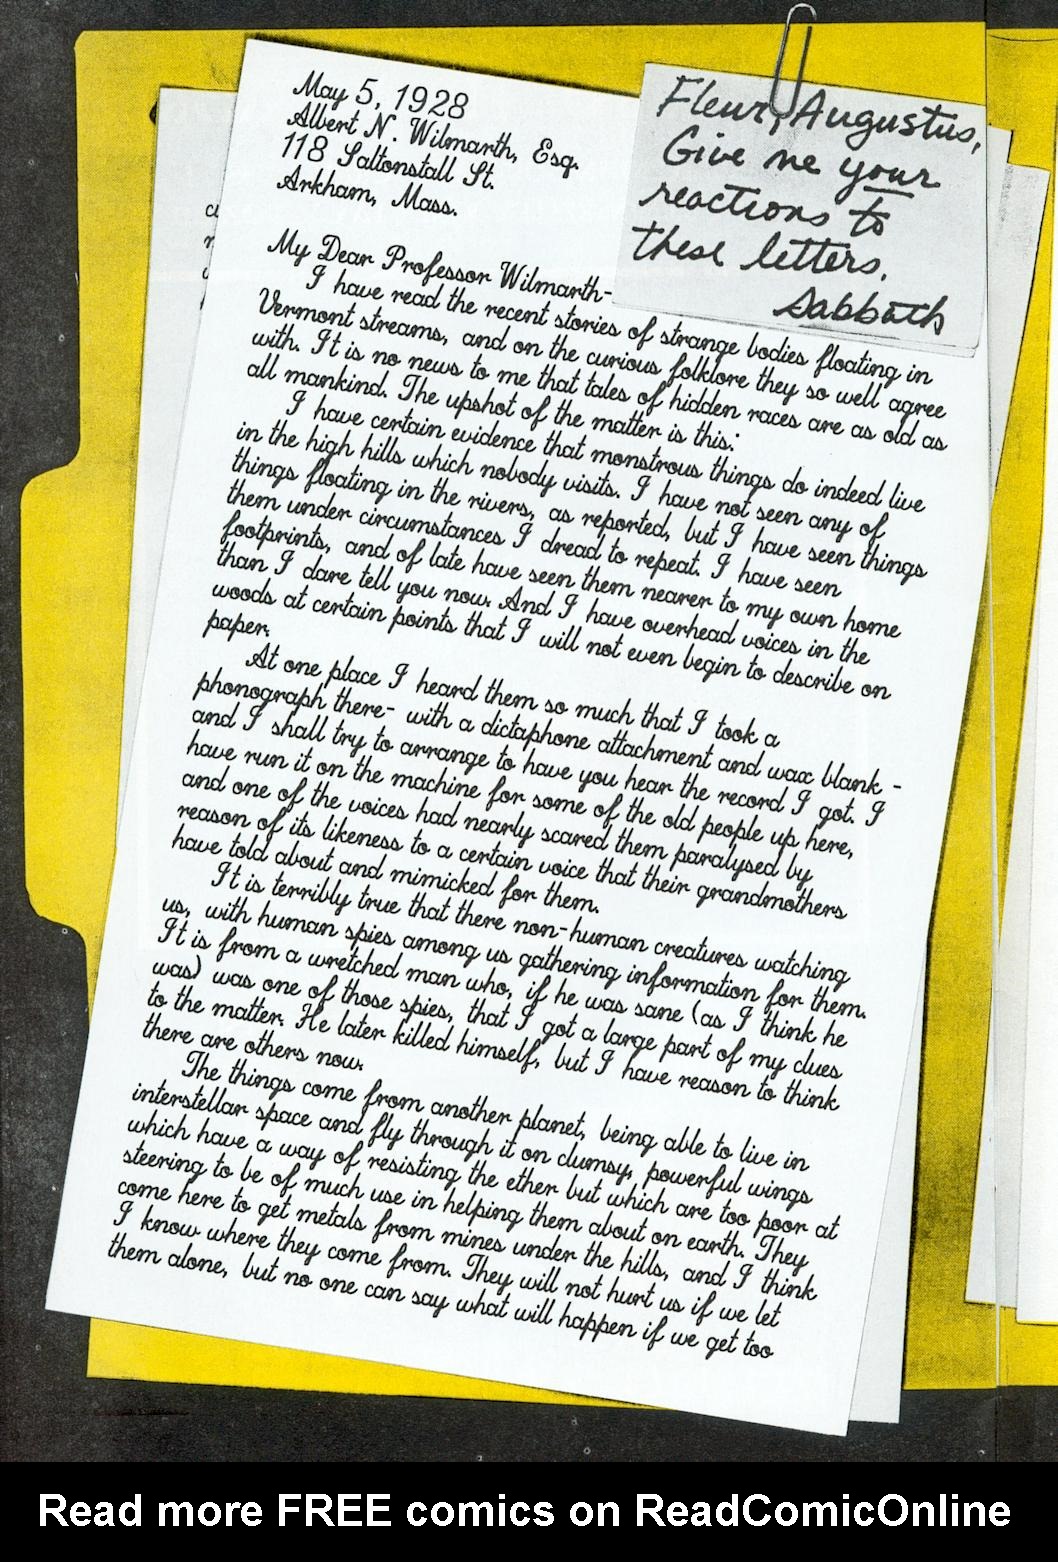 May 5, 1928
Albert N. Wilmarth, Esq.
118 Saltonstall St.
Arkham, Mass.
Fleur, Augustus,
Give me your
reactions to
these letters.
Sabbath
My Dear Professor Wilmarth-
I have read the recent stories of strange bodies floating in
Vermont streams, and on the curious folklore they so well agree
with. It is no news to me that tales of hidden races are as old as
all mankind. The upshot of the matter is this:
I have certain evidence that monstrous things do indeed live
in the high hills which nobody visits. I have not seen any of
things floating in the rivers, as reported, but I have seen things
them under circumstances I dread to repeat. I have seen
footprints, and of late have seen them nearer to my own home
than I dare tell you now. And I have overhead voices in the
woods at certain points that I will not even begin to describe on
paper.
At one place I heard them so much that I took a
phonograph there- with a dictaphone attachment and wax blank -
and I shall try to arrange to have you hear the record I got. I
have run it on the machine for some of the old people up here,
and one of the voices had nearly scared them paralysed by
reason of its likeness to a certain voice that their grandmothers
have told about and mimicked for them.
It is terribly true that there non-human creatures watching
us, with human spies among us gathering information for them.
It is from a wretched man who, if he was sane (as I think he
was) was one of those spies, that I got a large part of my clues
to the matter. He later killed himself, but I have reason to think
there are others now.
The things come from another planet, being able to live in
interstellar space and fly through it on clumsy, powerful wings
which have a way of resisting the ether but which are too poor at
steering to be of much use in helping them about on earth. They
come here to get metals from mines under the hills, and I think
I know where they come from. They will not hurt us if we let
them alone, but no one can say what will happen if we get too
Read more FREE comics on ReadComicOnline